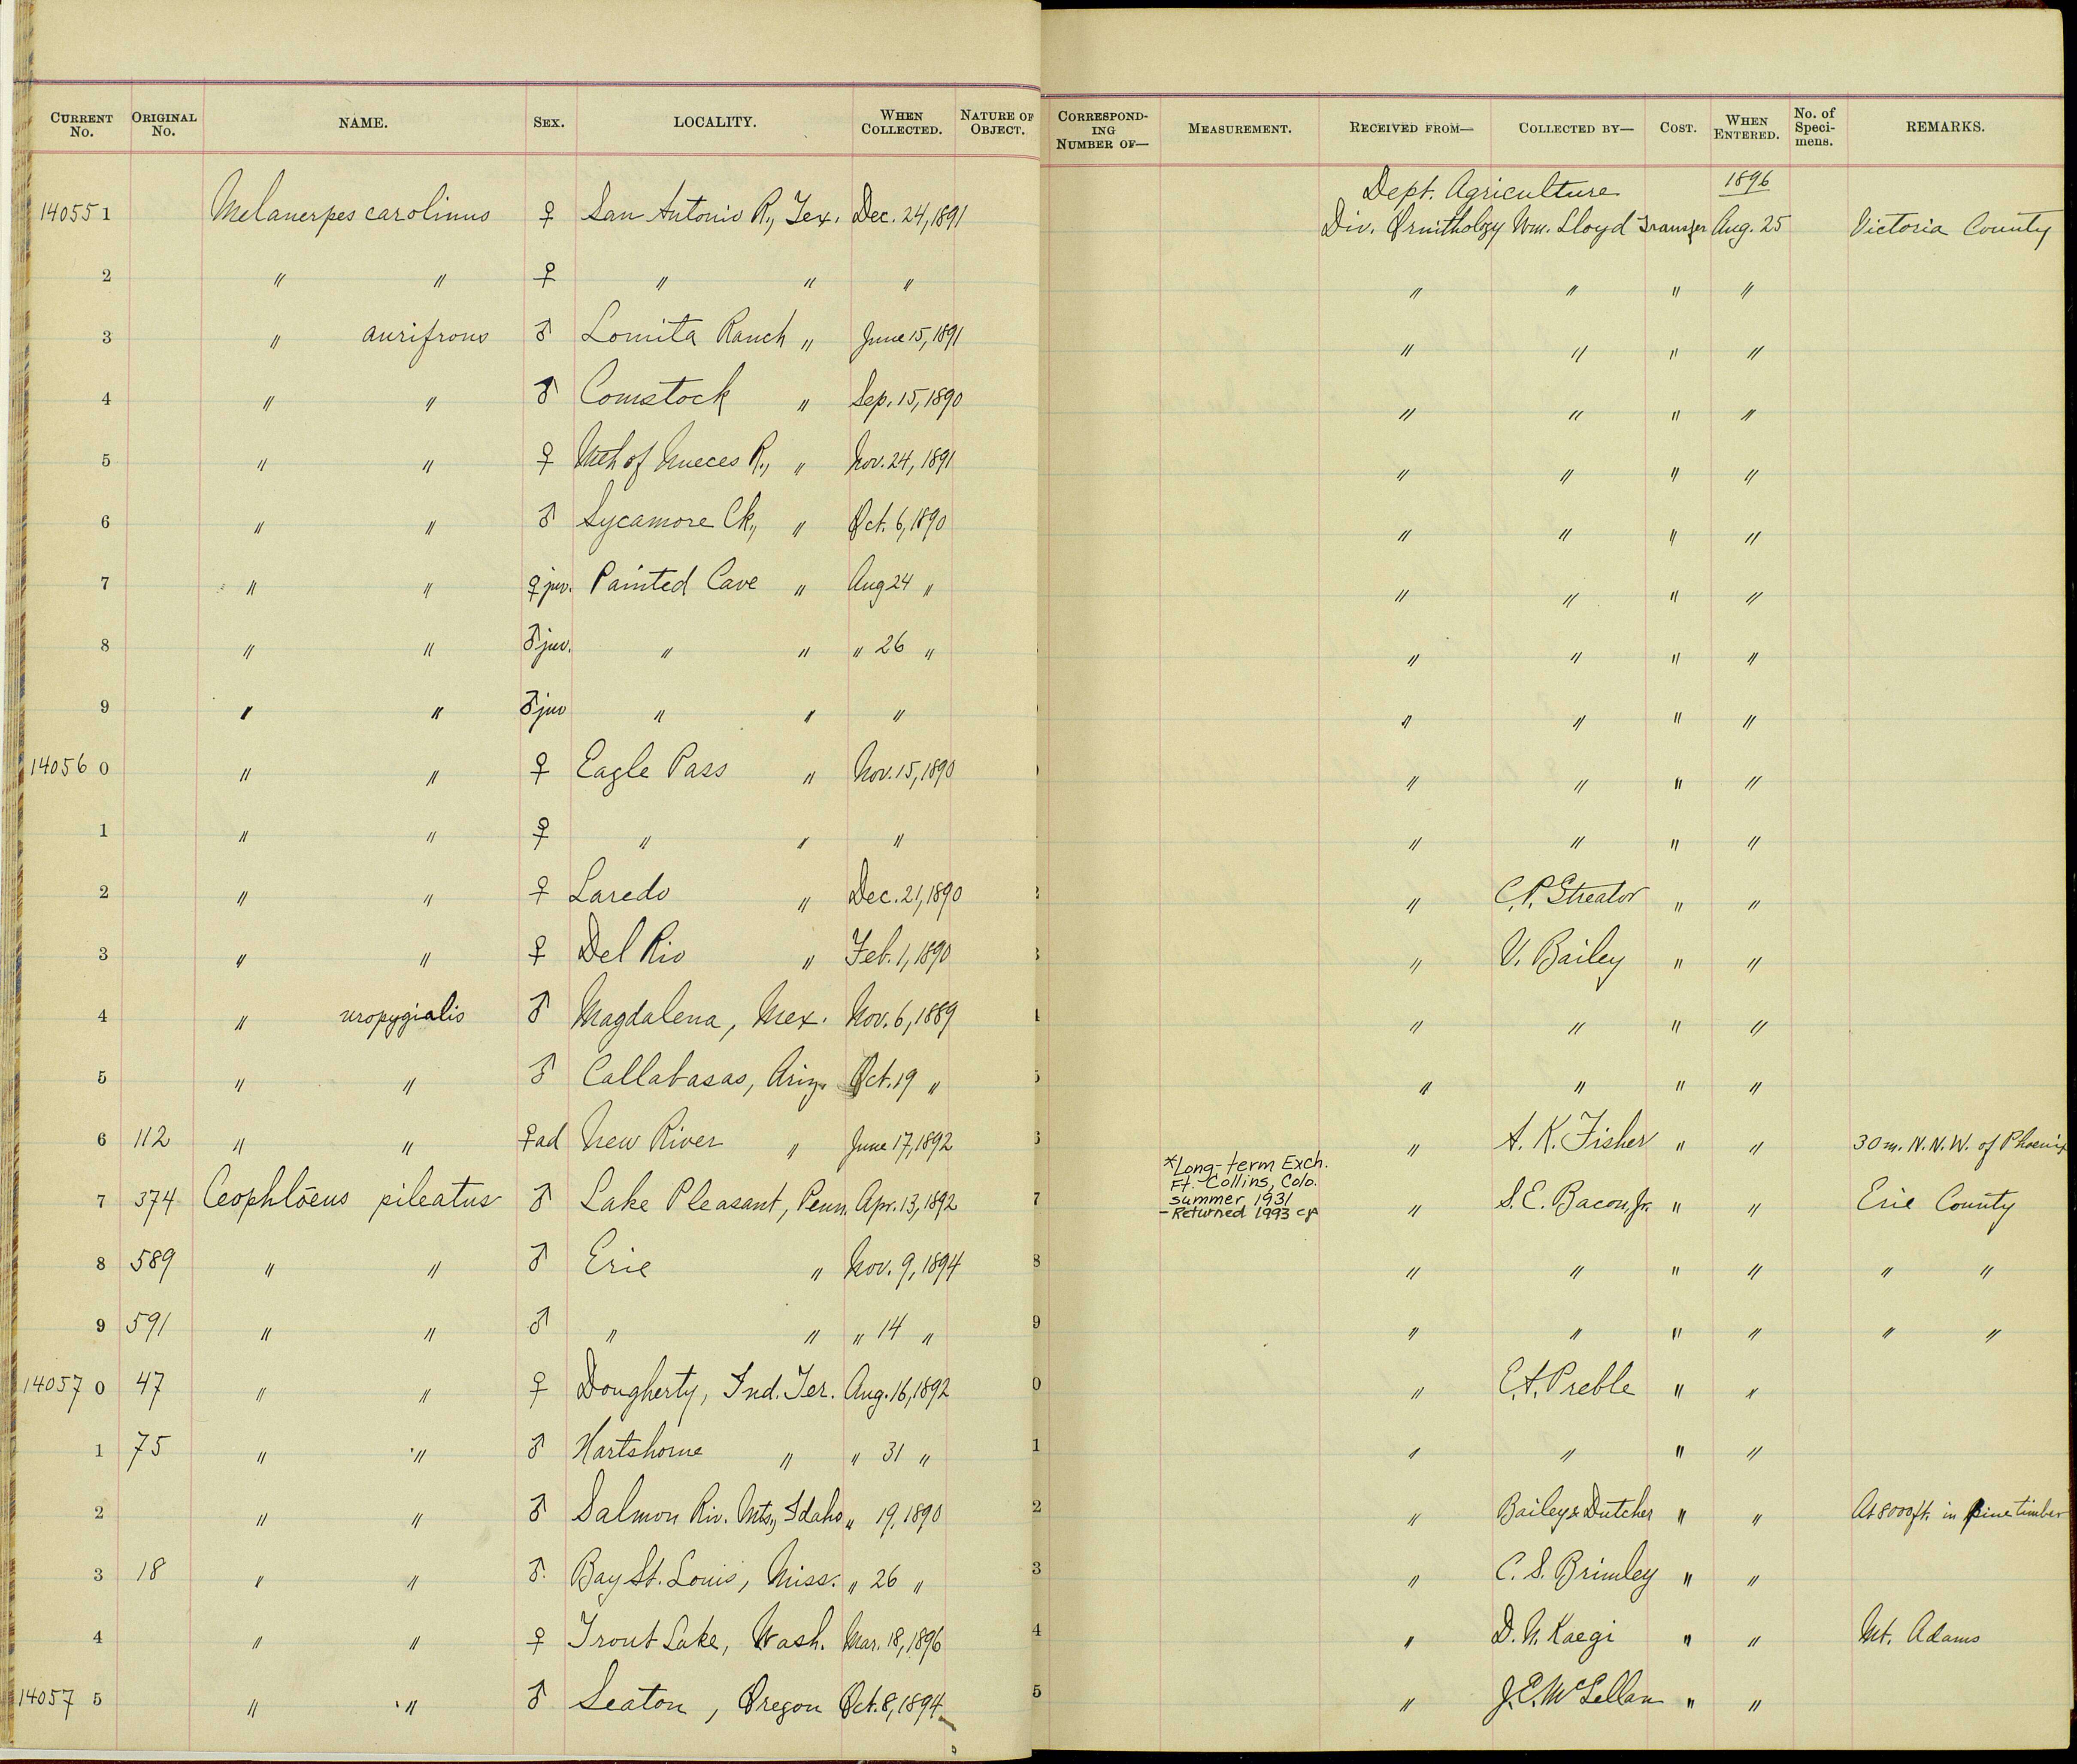 CURRENT No. ORIGINAL No. NAME. SEX. LOCALITY. WHEN COLLECTED. NATURE OF OBJECT. CORRESPONDING NUMBER OF— MEASUREMENT. RECEIVED FROM— COLLECTED BY— COST. WHEN ENTERED. No. of Specimens. REMARKS.
Dept. Agriculture 1896
14055 1 Melanerpes carolinus ♀ San Antonio R., Tex. Dec. 24, 1891 Div. Ornithology Wm. Lloyd Transfer Aug. 25 Victoria County
2 " " ♀ " " " " " " "
3 " aurifrons ♂ Lomita Ranch " June 15, 1891 " " " "
4 " " ♂ Comstock " Sep. 15, 1890 " " " "
5 " " ♀ Mth of Nueces R., " Nov. 24, 1891 " " " "
6 " " ♂ Sycamore Ck., " Oct. 6, 1890 " " " "
7 " " ♀ juv. Painted Cave " Aug 24 " " " " "
8 " " ♂ juv. " " " 26 " " " " "
9 " " ♂ juv " " " " " " "
14056 0 " " ♀ Eagle Pass " Nov. 15, 1890 " " " "
1 " " ♀ " " " " " " "
2 " " ♀ Laredo " Dec. 21, 1890 " C. P. Streator " "
3 " " ♀ Del Rio " Feb. 1, 1890 " V. Bailey " "
4 " uropygialis ♂ Magdalena, Mex. Nov. 6, 1889 " " " "
5 " " ♂ Callabasas, Ariz. Oct. 19 " " " " "
6 112 " " ♀ ad New River " June 17, 1892 " A. K. Fisher " " 30 m. N.N.W. of Phoenix
*Long-term Exch.
Ft. Collins, Colo.
summer, 1931
- Returned 1993
7 374 Ceophlöeus pileatus ♂ Lake Pleasant, Penn. Apr. 13, 1892 7 " S. E. Bacon, Jr. " " Erie County
8 589 " " ♂ Erie " Nov. 9, 1894 8 " " " " " "
9 591 " " ♂ " " " 14 " 9 " " " " " "
14057 0 47 " " ♀ Dougherty, Ind. Ter. Aug. 16, 1892 0 " E. A. Preble " "
1 75 " " ♂ Hartshorne " " 31 " 1 " " " "
2 " " ♂ Salmon Riv. Mts., Idaho " 19, 1890 2 " Bailey & Dutcher " " At 8000 ft. in pine timber
3 18 " " ♂. Bay St. Louis, Miss. " 26 " 3 " C. S. Brimley " "
4 " " ♀ Trout Lake, Wash. Mar. 18, 1896 4 " D. N. Kaegi " " Mt. Adams
14057 5 " " ♂ Seaton, Oregon Oct. 8, 1894 5 " J. E. McLellan " "